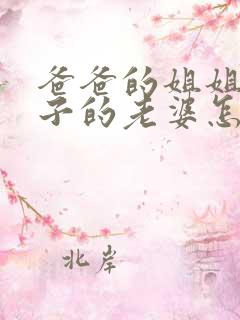 爸爸的姐姐
子的老婆怎
北岸